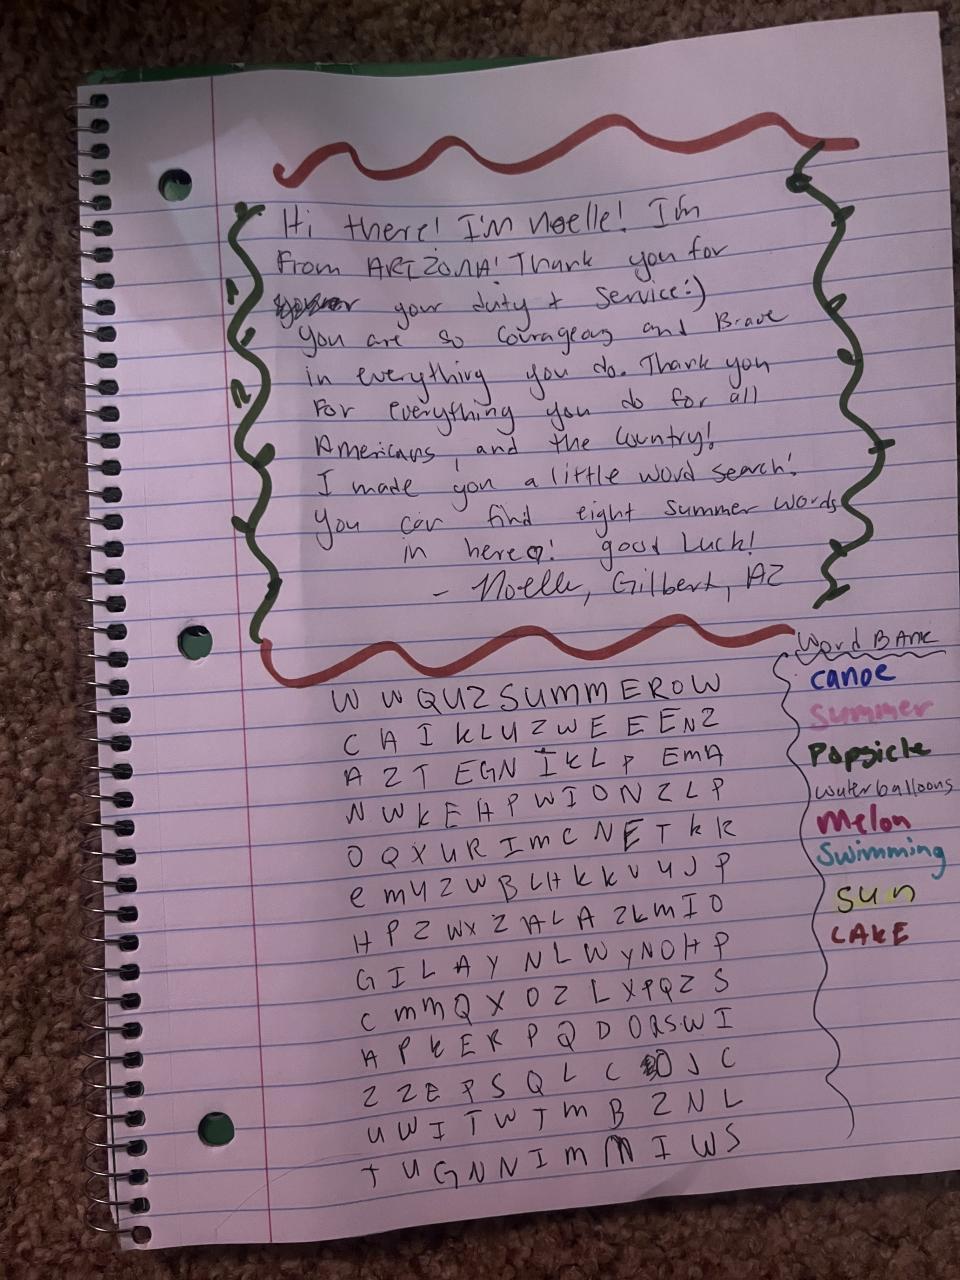 Hi there! I'm Noelle! I'm
From ARIZONA! Thank you for
your duty + Service:)
You are so Courageous and Brave
in everything you do. Thank you
For everything you do for all
Americans, and the Country!
I made you a little word search!
You can find eight summer words
in here! good Luck!
- Noelle, Gilbert, AZ
Word BANK
canoe
Summer
Popsicle
waterballoons
Melon
Swimming
SUN
LAKE
W W Q U Z S U M M E R O W
C A I K L U Z W E E E N Z
A Z T E G N I K L P E M A
N W K E H P W I O N Z L P
O Q X U R I M C N E T K R
e m U Z W B L H K K V U J P
H P Z W X Z A L A Z K M I O
G I L A Y N L W Y N O H P
C M M Q X O Z L X P Q Z S
A P K E R P Q D O R S W I
Z Z E P S Q L C O J C
U W I T W T M B Z N L
T U G N N I M M I W S